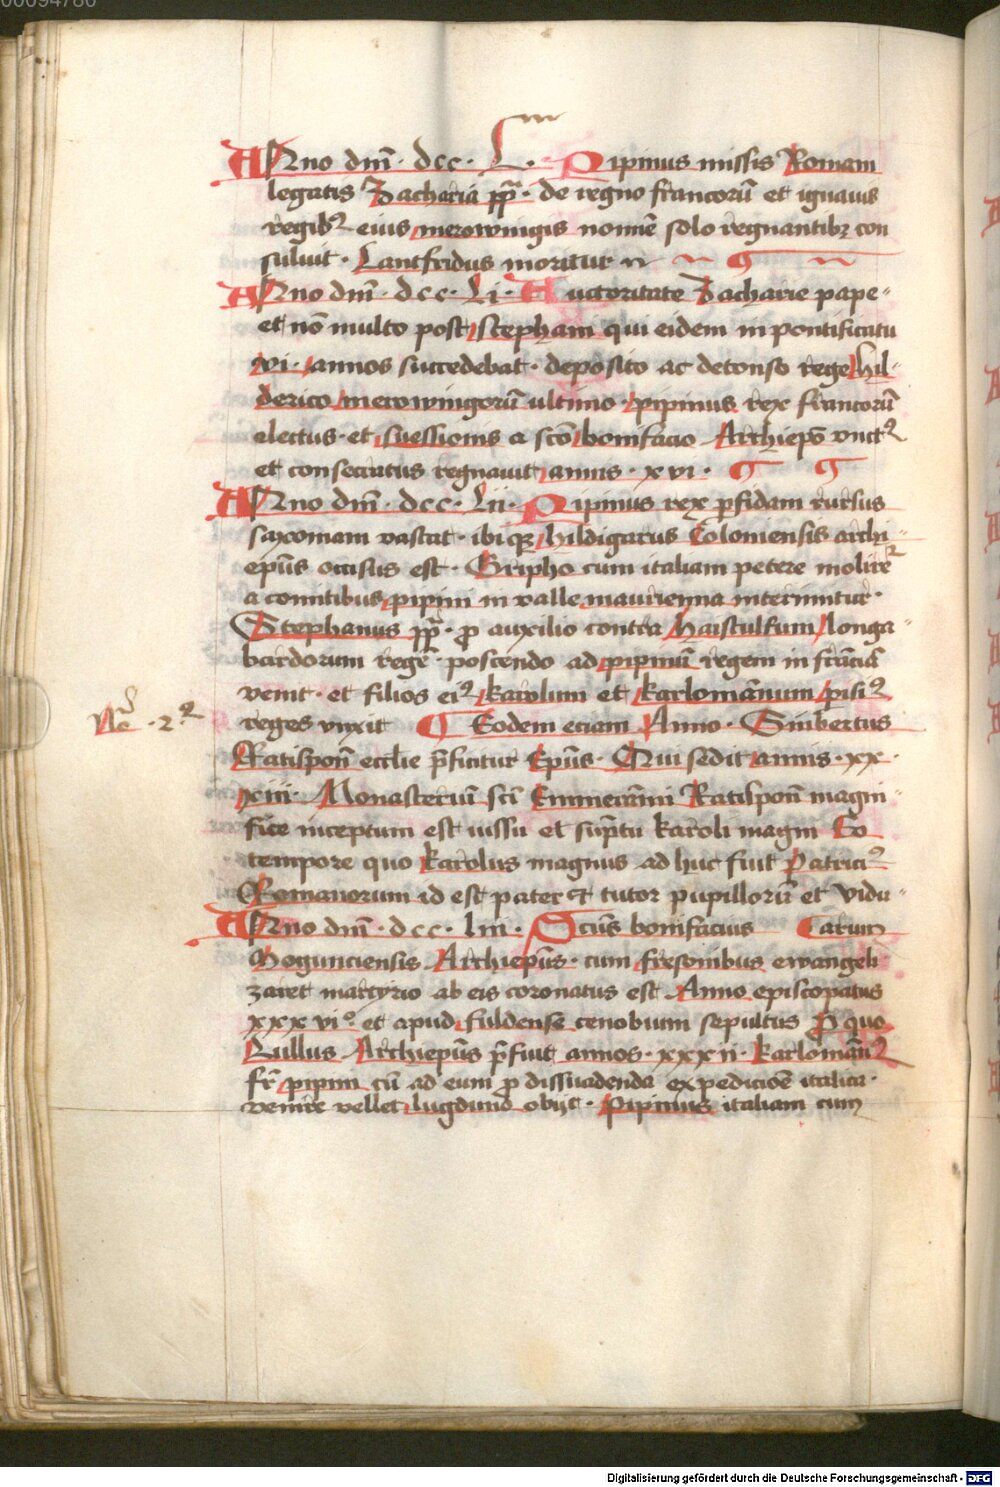 00094780
Anno dm̄ · dcc · L · Pipinus missis Romam
legatis Zacharia pp̄ · de regno francorū et ignauis
regibꝰ eius merowingis nomē solo regnantibꝫ con
suluit · Lantfridus moritur
Anno dm̄ · dcc · Li · Auctoritate Zacharie pape
et nō multo post stephani qui eidem in pontificatu
vi · annos succedebat · deposito ac detonso rege hil-
derico merowingorū ultimo · pipinus rex francorū
electus · et suessionis a scō bonifacio Archiepō vnctꝰ
et consecratus regnauit annis · xvi ·
Anno dm̄ · dcc · Lii · Pipinus rex ꝑfidam rursus
saxoniam vastat · ibi qꝫ hildigarus Coloniensis archi-
epūs occisus est · Gripho cum italiam petere molireꝉ
a comitibus pipini in valle maurienna interimitur ·
Stephanus pp̄ · ꝓ auxilio contra haistulfum longa-
bardorum regē · poscendo ad pipinū regem in frācia
venit · et filios eiꝰ karolum et karlomānum pisiꝰ
Nō · 2ꝰ reges vnxit ¶ Eodem eciam Anno · Sinbertus
Ratisponn̄ ecclīe p̄ficitur Epūs · Qui sedit annis · xx ·
xiii · Monasteriū scī Emmerāmi Ratisponn̄ magni-
fice inceptum est iussu et sūptu karoli magni Eo
tempore quo karolus magnus ad huc fuit Patriciꝰ
Romanorum id est pater et tutor pupillorū et vidu-
Anno dm̄ · dcc · liii · Scūs bonifacius arum
Mogunciensis Archiepūs · cum fresonibus ewangeli
zaret martyrio ab eis coronatus est Anno episcopatus
xxxviº et apud fuldensē cenobium sepultus ꝓ quo
Lullus Archiepūs p̄fuit annos · xxxii · karlomānꝰ
fr̄ pipini cū ad eum ꝓ dissuadenda expedicioē italica ·
venire vellet lugduno obijt · Pipinus italiam cum
Digitalisierung gefördert durch die Deutsche Forschungsgemeinschaft - DFG